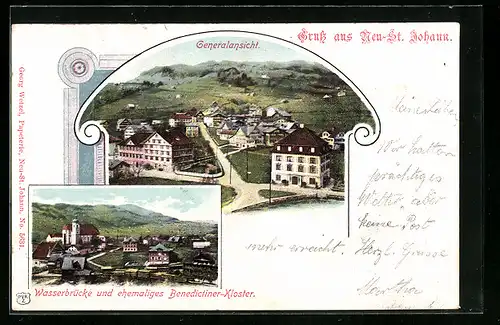 Gruß aus Neu-St. Johann.
Generalansicht.
Wir hatten
prächtiges
Wetter, aber
keine Post
mehr erreicht. Herzl. Grüsse
Martha
Wasserbrücke und ehemaliges Benedictiner-Kloster.
Georg Wetzel, Papeterie, Neu-St. Johann. No. 5631.